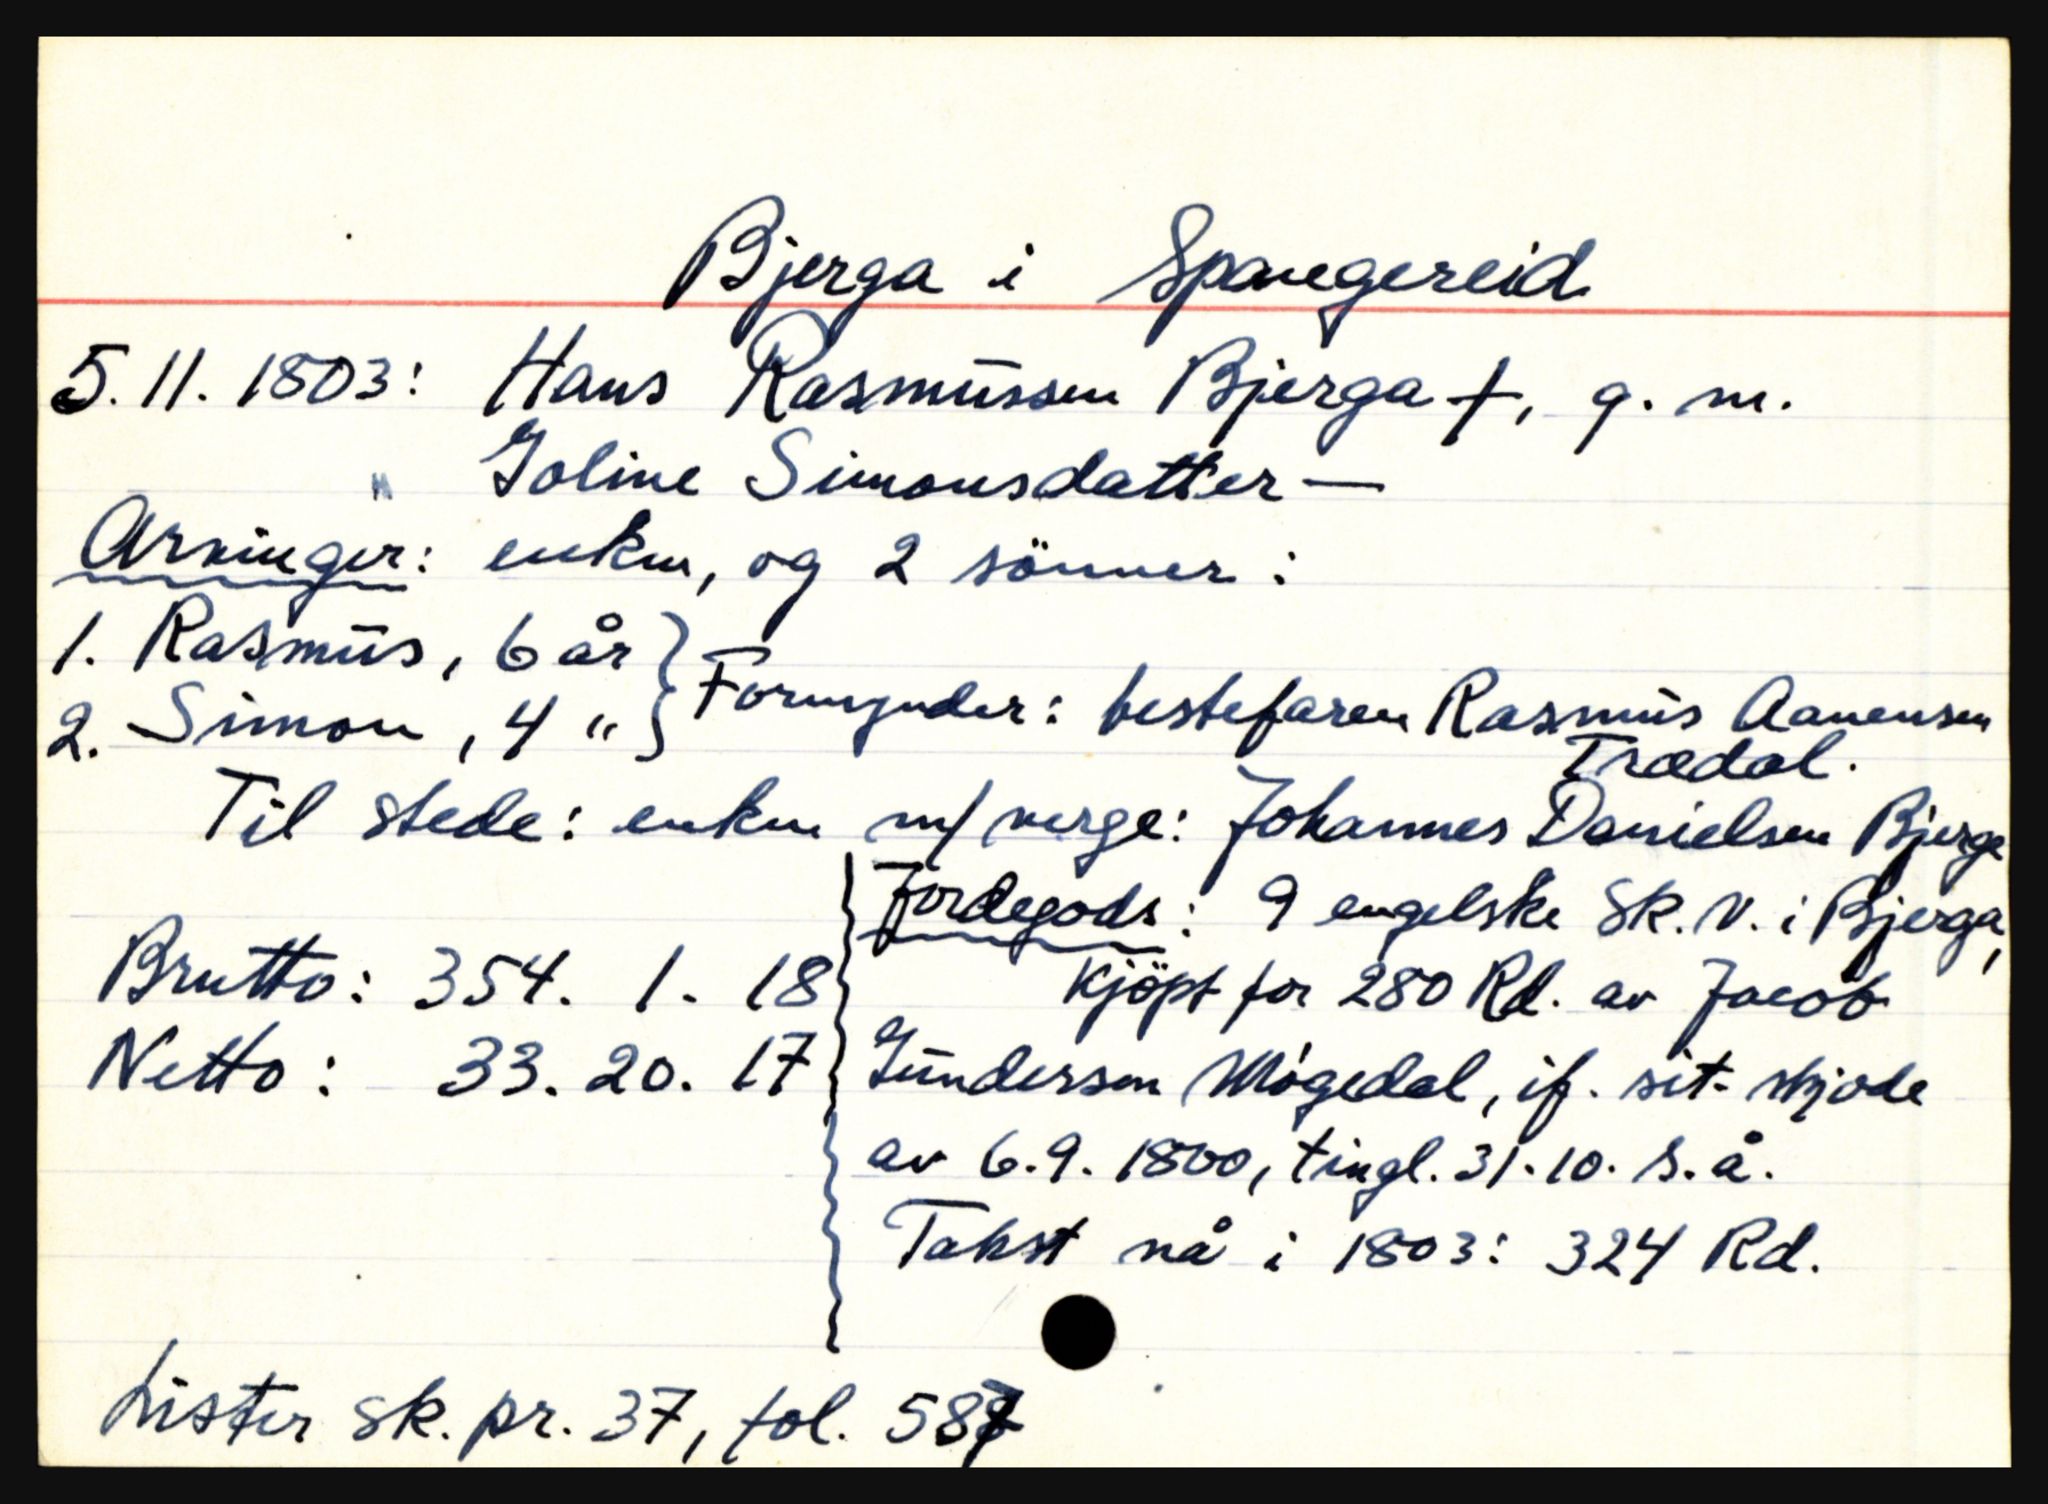 Bjerga i Spangereid
5.11. 1803: Hans Rasmussen Bjerga †, g. m.
" Joline Simonsdatter —
Arvinger: enken, og 2 sönner:
1. Rasmus, 6 år
2. Simon, 4 "
} Formynder: bestefaren Rasmus Aanensen
Trædal.
Til stede: enken m/ verge: Johannes Danielsen Bjerge
Jordegods: 9 engelske Sk. V. i Bjerga,
kjöpt for 280 Rd. av Jacob
Gundersen Mögedal, if. sit skjöde
av 6.9. 1800, tingl. 31.10. s. å.
Takst nå i 1803: 324 Rd.
Brutto: 354. 1. 18
Netto: 33. 20. 17
Lister sk. pr. 37, fol. 587